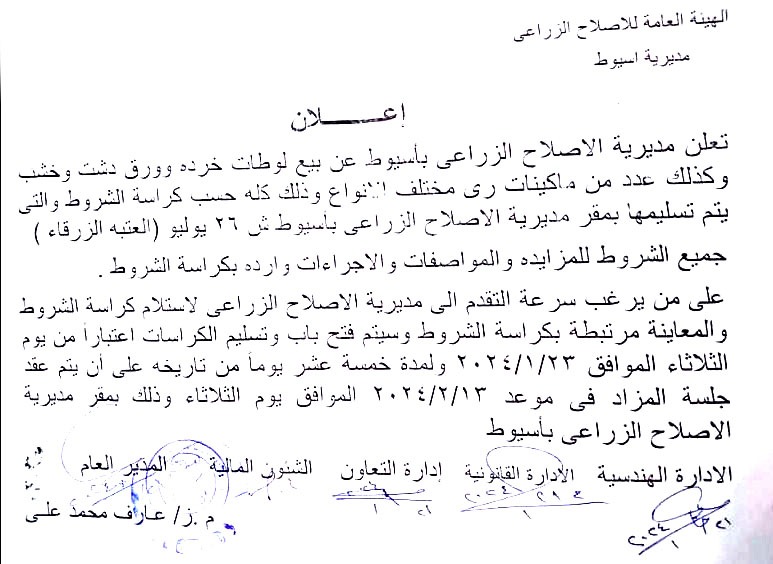 الهيئة العامة للاصلاح الزراعى
مديرية اسيوط
إعـــــــلان
تعلن مديرية الاصلاح الزراعى بأسيوط عن بيع لوطات خرده وورق دشت وخشب
وكذلك عدد من ماكينات رى مختلف الانواع وذلك كله حسب كراسة الشروط والتى
يتم تسليمها بمقر مديرية الاصلاح الزراعى بأسيوط ش ٢٦ يوليو (العتبه الزرقاء )
جميع الشروط للمزايده والمواصفات والاجراءات وارده بكراسة الشروط .
على من يرغب سرعة التقدم الى مديرية الاصلاح الزراعى لاستلام كراسة الشروط
والمعاينة مرتبطة بكراسة الشروط وسيتم فتح باب وتسليم الكراسات اعتباراً من يوم
الثلاثاء الموافق ٢٠٢٤/١/٢٣ ولمدة خمسة عشر يوماً من تاريخه على أن يتم عقد
جلسة المزاد فى موعد ٢٠٢٤/٢/١٣ الموافق يوم الثلاثاء وذلك بمقر مديرية
الاصلاح الزراعى بأسيوط
الادارة الهندسية الأدارة القانونية إدارة التعاون الشئون المالية المدير العام
م.ز/ عارف محمد على